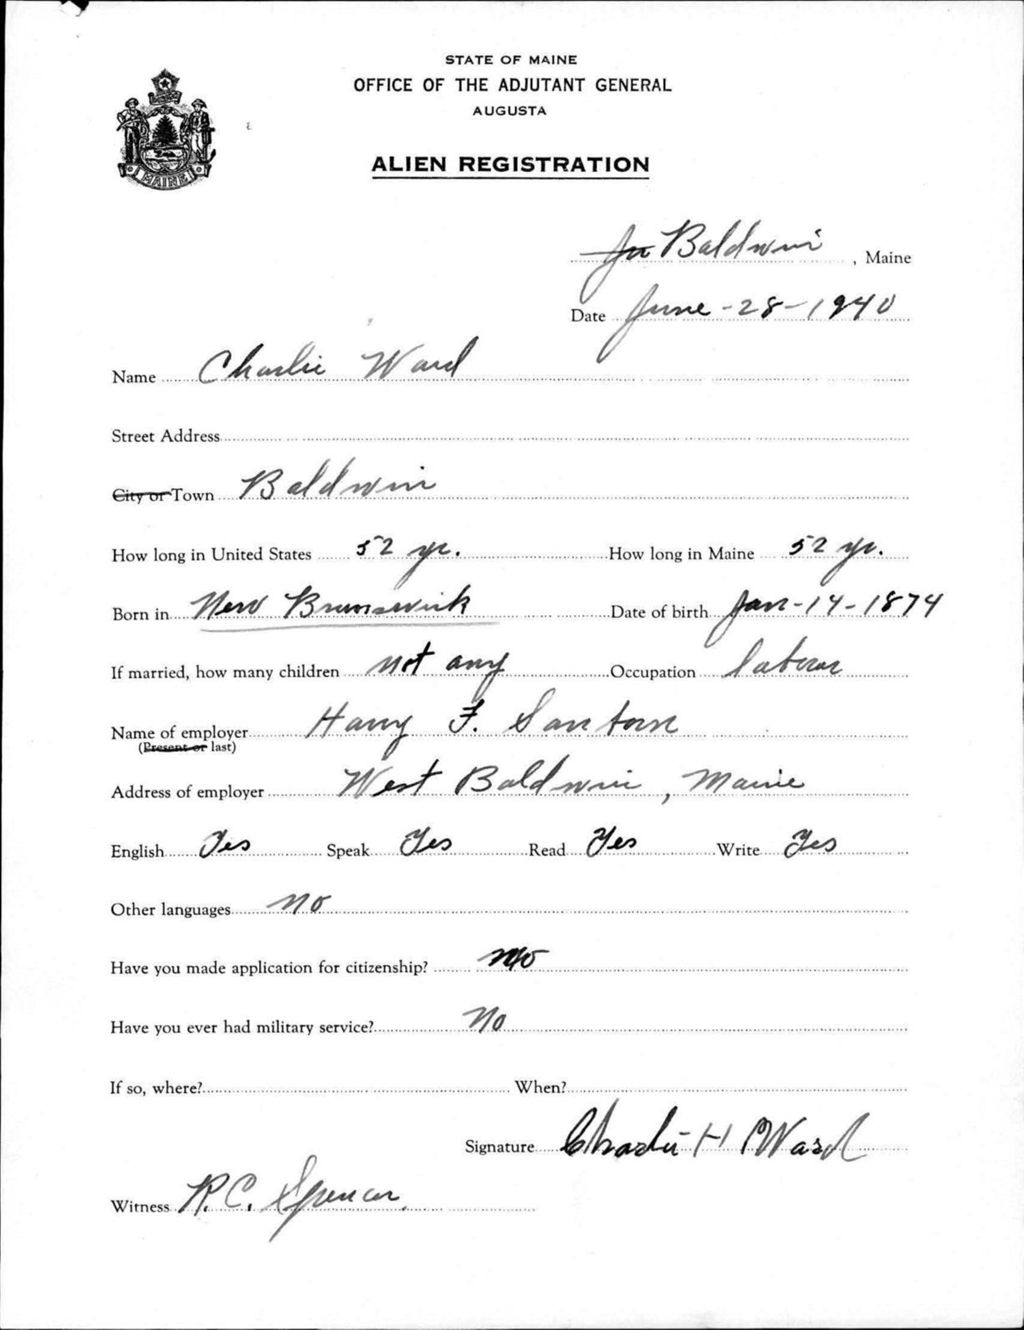 STATE OF MAINE
OFFICE OF THE ADJUTANT GENERAL
AUGUSTA
MAINE
ALIEN REGISTRATION
In Baldwin, Maine
Date June-28-1940
Name Charlie Ward
Street Address
City or Town Baldwin
How long in United States 52 yr. How long in Maine 52 yr.
Born in New Brunswick Date of birth Jan-14-1874
If married, how many children not any Occupation laborer
Name of employer Harry F. Sanborn
(Present or last)
Address of employer West Baldwin, Maine
English Yes Speak Yes Read Yes Write Yes
Other languages no
Have you made application for citizenship? No
Have you ever had military service? No
If so, where? When?
Signature Charlie H Ward
Witness R.C. Spencer